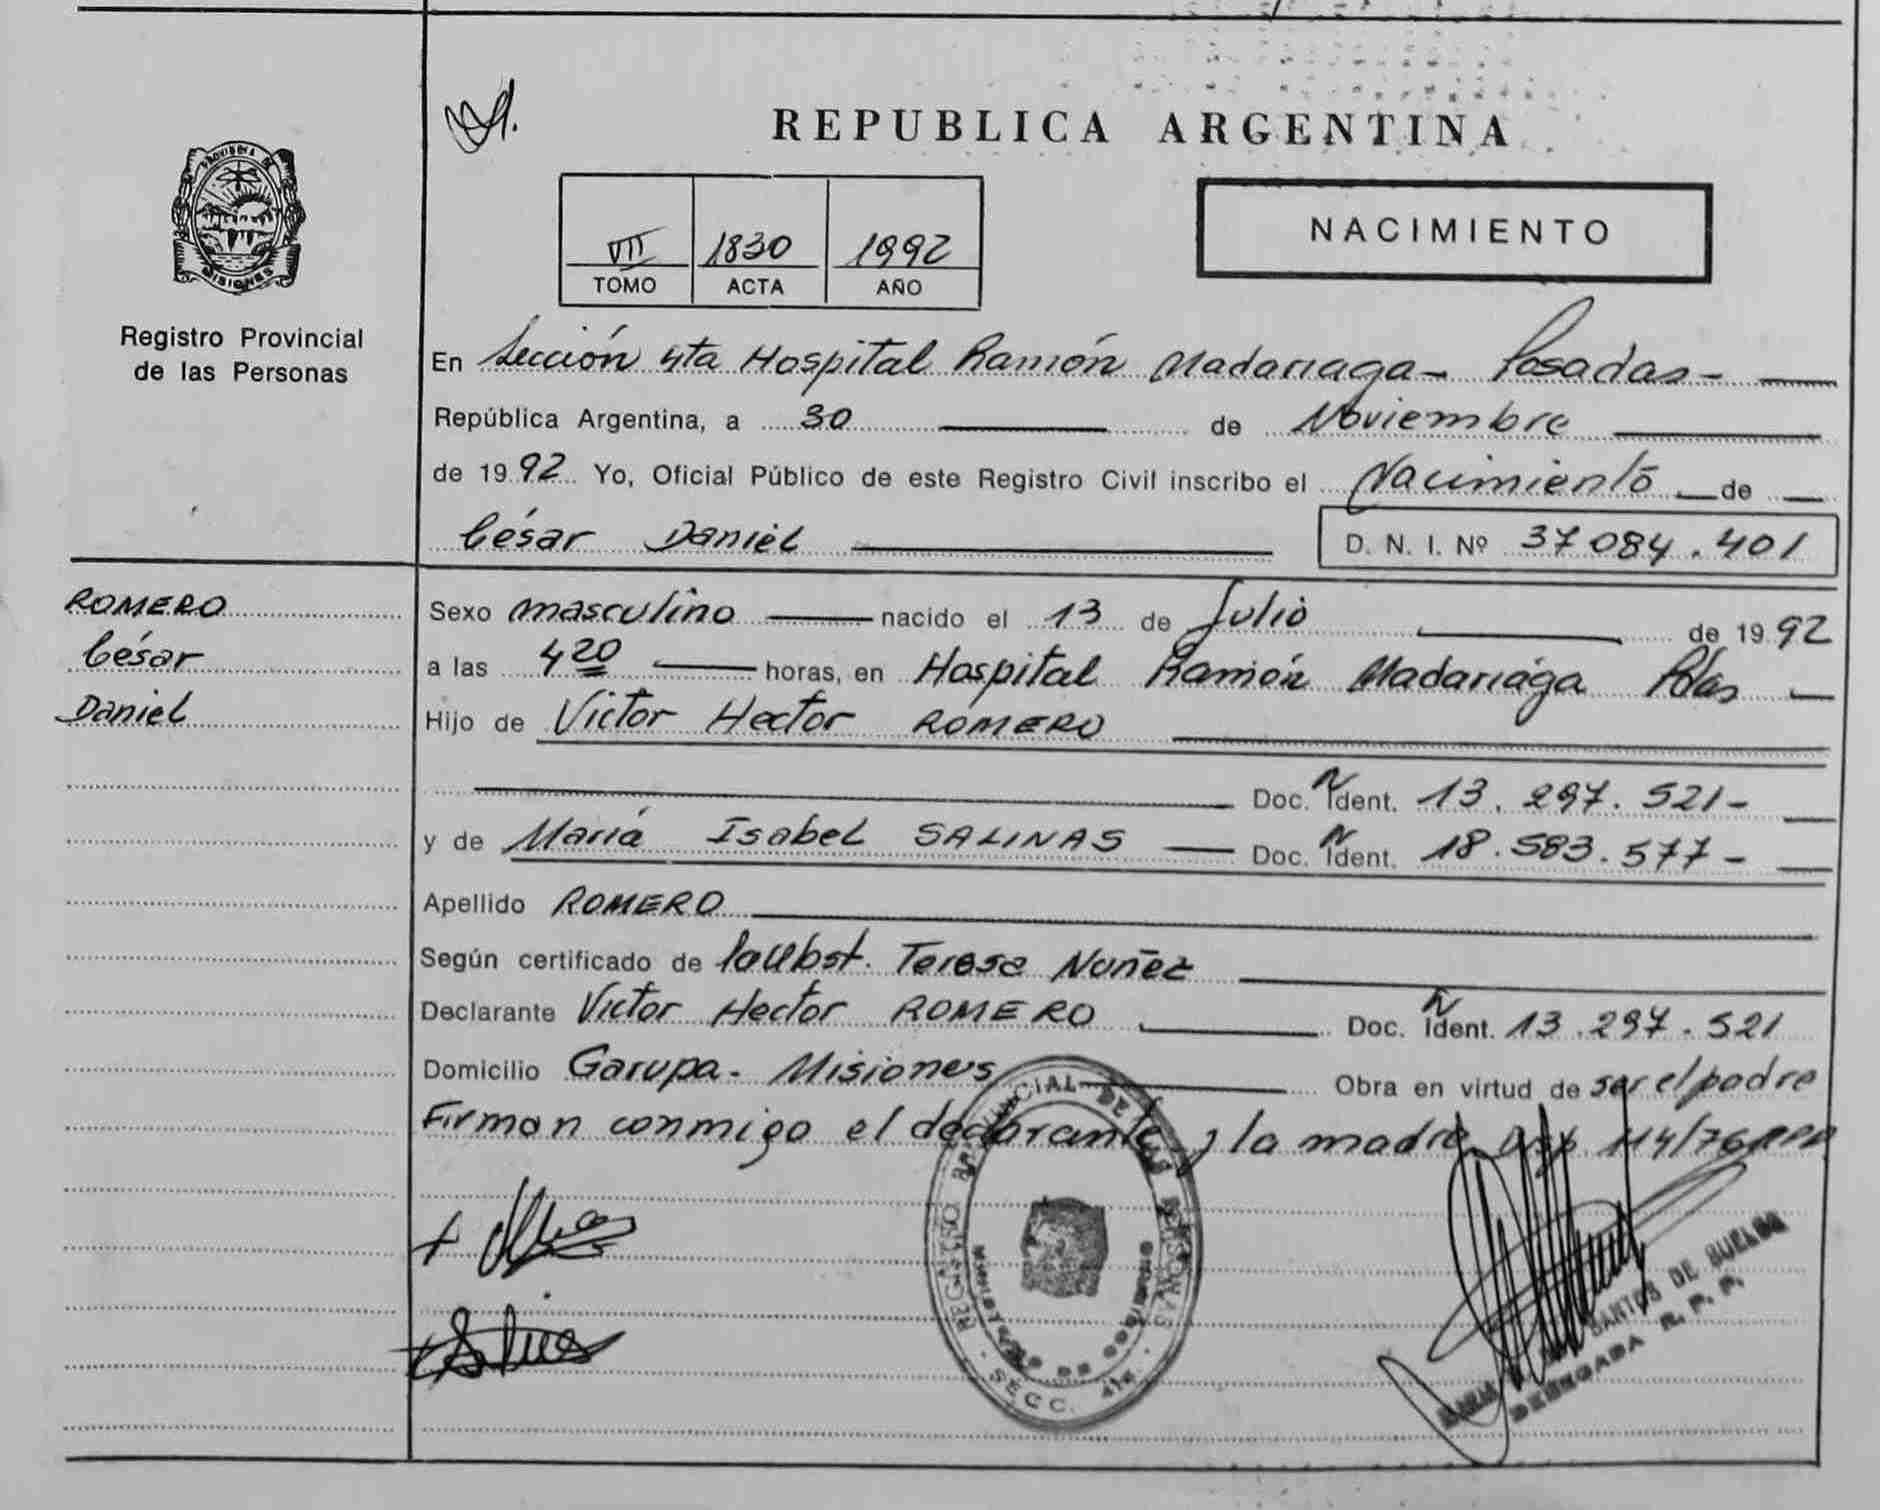 REPUBLICA ARGENTINA
PROVINCIA DE
MISIONES
Registro Provincial
de las Personas
VII 1830 1992
TOMO ACTA AÑO
NACIMIENTO
En Sección 4ta Hospital Ramón Madariaga - Posadas -
República Argentina, a 30 de Noviembre
de 1992 Yo, Oficial Público de este Registro Civil inscribo el Nacimiento de
César Daniel D. N. I. Nº 37084.401
ROMERO
César
Daniel
Sexo masculino nacido el 13 de Julio de 1992
a las 4 20 horas, en Hospital Ramón Madariaga Pdas
Hijo de Victor Hector ROMERO
Doc. Ident. N 13.297.521-
y de María Isabel SALINAS Doc. Ident. N 18.583.577-
Apellido ROMERO
Según certificado de Teresa Nuñez
Declarante Victor Hector ROMERO Doc. Ident. N 13.297.521
Domicilio Garupa - Misiones Obra en virtud de ser el padre
Firman conmigo el declarante y la madre Disp. 114/76
REGISTRO PROVINCIAL DE LAS PERSONAS
SECC. 4ta.
SANTOS DE BUELDO
DELEGADA R. P. P.